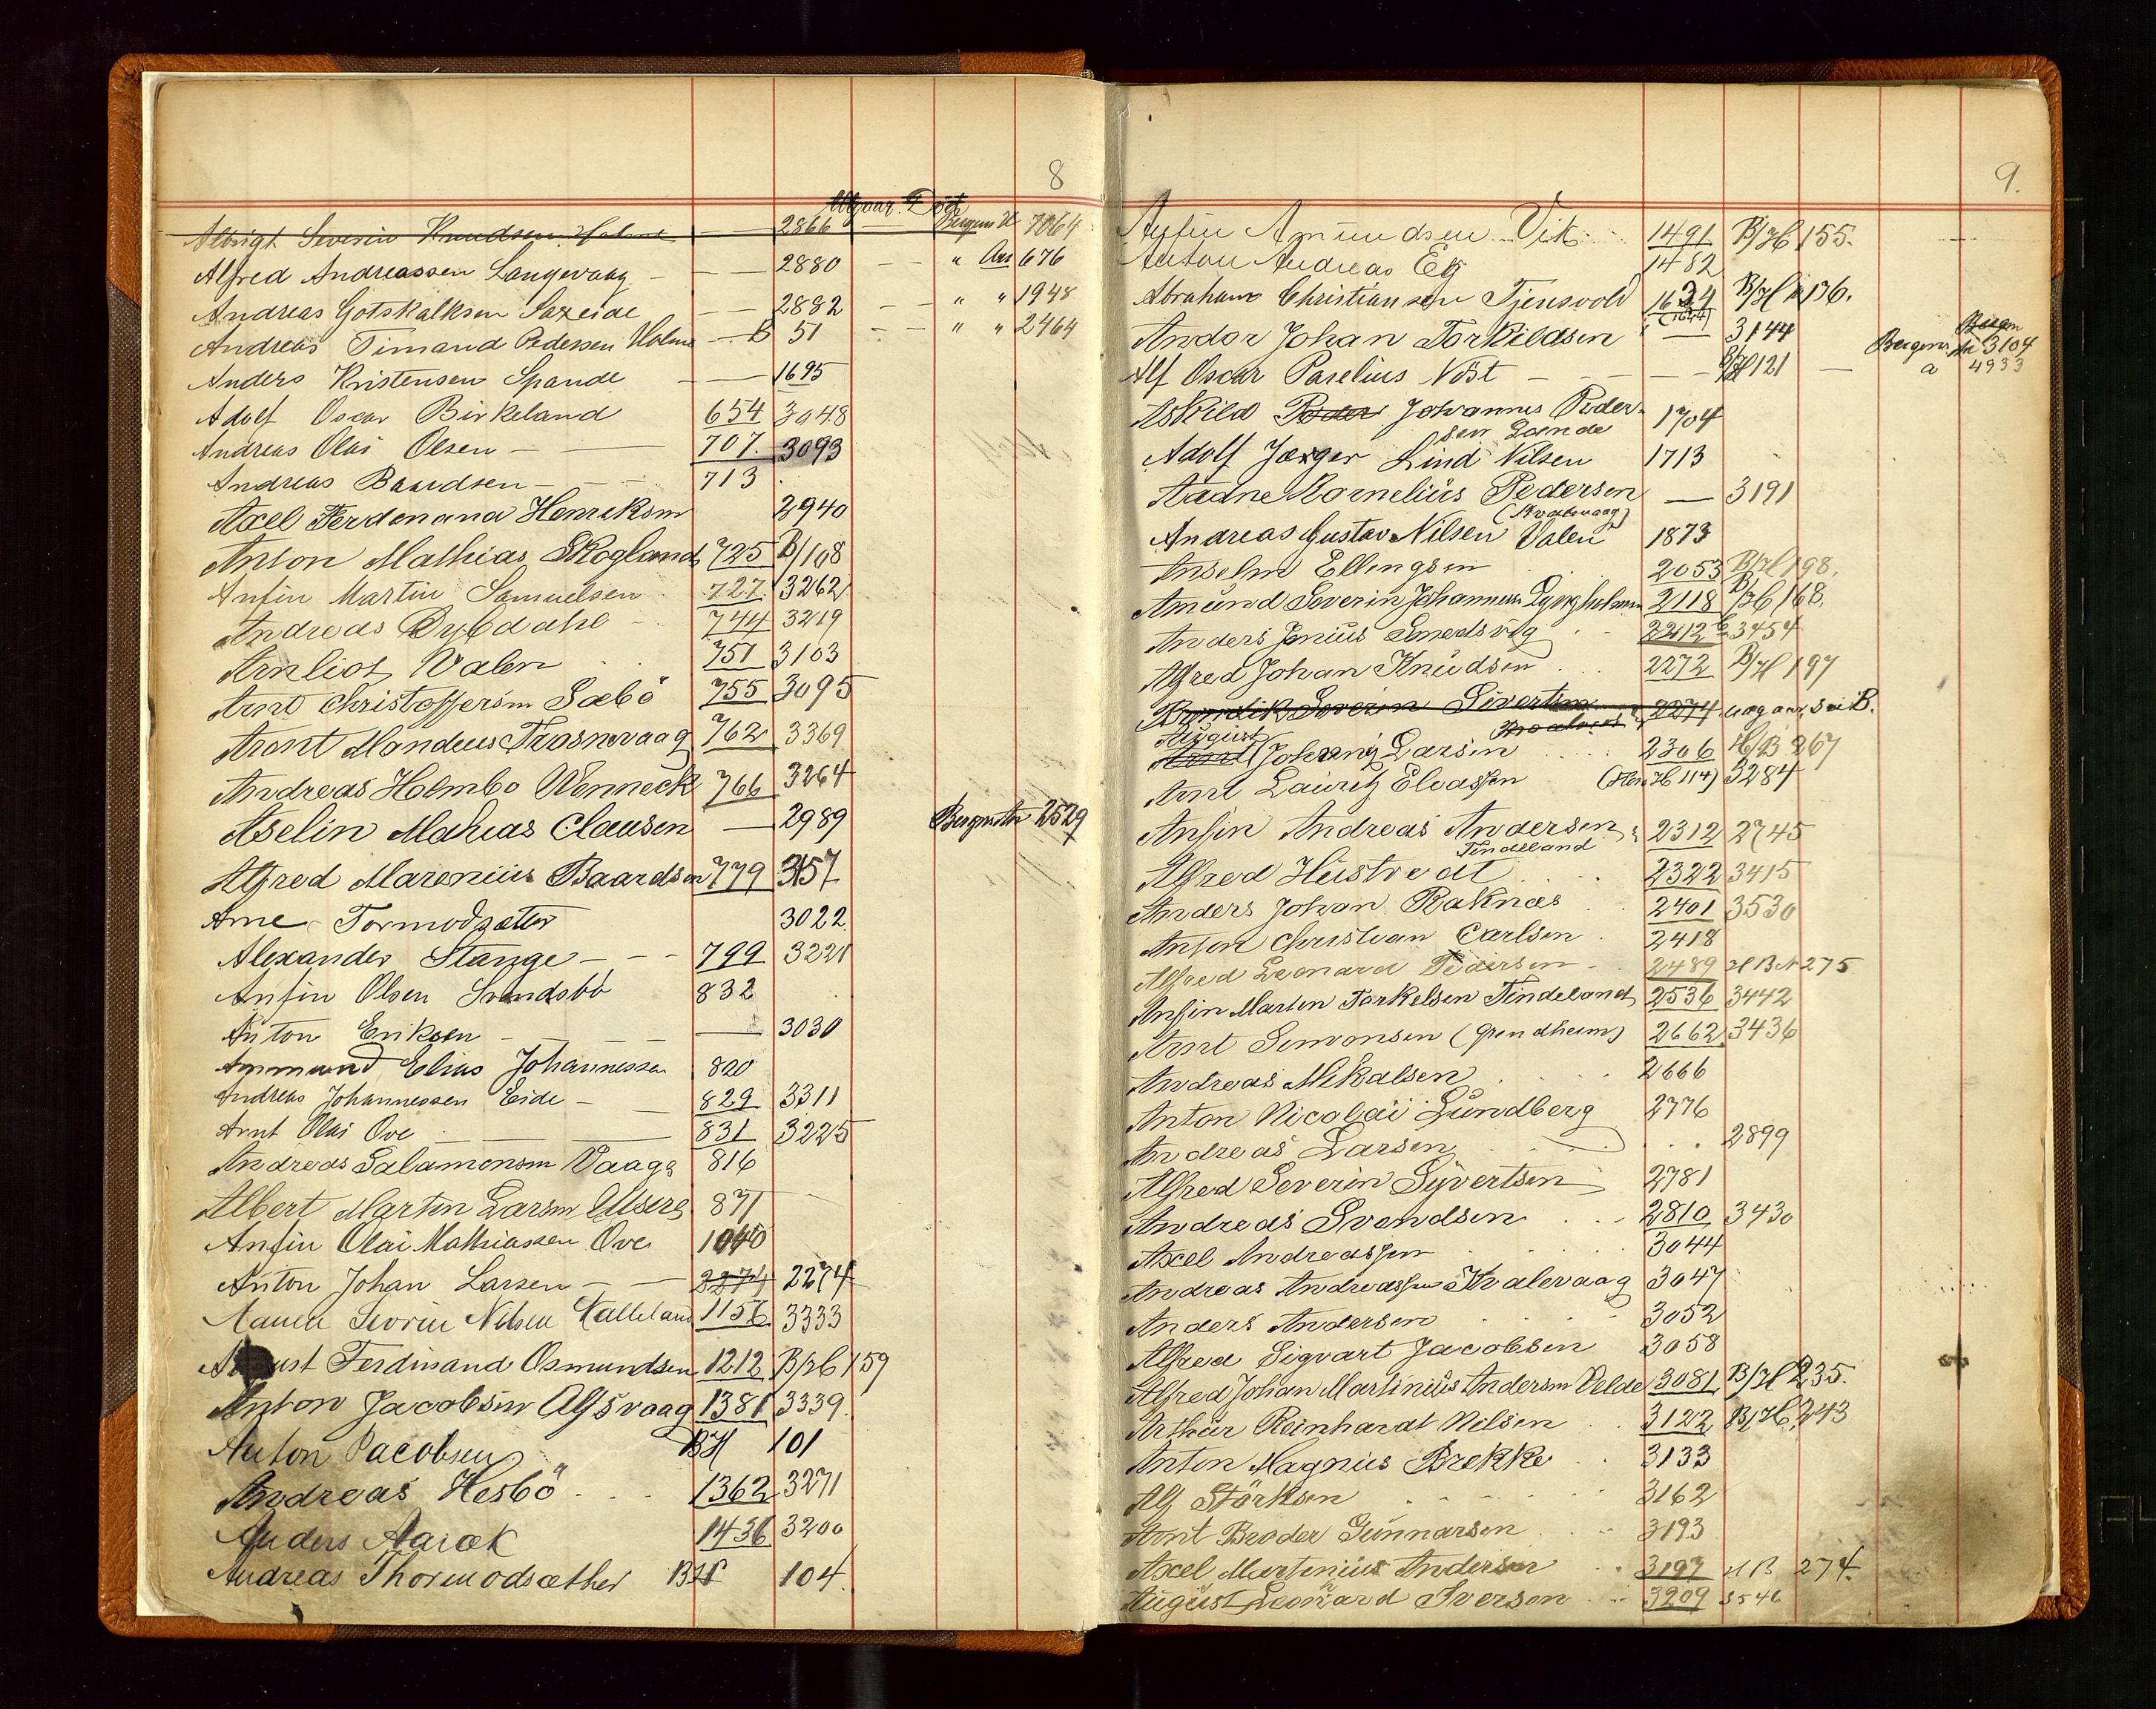 8
Albrigt Severin Knudsen Holme — — 2866 — Bergens 7064
Alfred Andreassen Langevaag — — — 2880 — — " Ann 676
Andreas Gotskalksen Saxeide — — 2882 — — " " 1948
Andreas Timand Pedersen Holme — B 51 — — " " 2464
Anders Kristensen Spande — — 1695
Adolf Oscar Birkeland 654 3048
Andreas Olai Olsen — — 707. 3093
Andreas Baardsen — — — 713
Axel Ferdinand Henriksen 2940
Anton Mathias Skogland 725 B/108
Anfin Martin Samuelsen 727. 3262
Andreas Dybdahl — 744 3219
Arnliot Valen 751 3103
Arnt Christoffersen Sæbö 755 3095
Aront Mandeus Trosnevaag 762 3369
Andreas Holmbo Wenneck 766 3264
Aselin Mathias Clausen — 2989 Bergens Ann 2529
Alfred Marenius Baardsen 779 3157
Arne Tormodsæter 3022.
Alexander Stange — — — 799 3221
Anfin Olsen Svendsbö 832
Anton Eriksen — — — — 3030
Ammund Elias Johannessen 820
Andreas Johannessen Eide — — 829 3311
Arnt Olai Ove — — — 831 3225
Andreas Salamonsen Vaage 816
Albert Martin Larsen Utsire 871
Anfin Olai Mathiassen Ove 1040
Anton Johan Larsen — — 2274 2274
Severin Nilsen Kalleland 1156 3333
August Ferdinand Osmundsen 1212 B/H 159
Anton Jacobsen Alfsvaag 1381 3339.
Anton Jacobsen BH 101
Andreas Hesbö 1362 3271
Anders Aarak 1436 3200
Andreas Thormodsæther BH 104.
9.
Anfin Amundsen Vik 1491 B/H 155.
Anton Andreas Eg 1482
Abraham Christiansen Tjensvold 1634 B/H 136.
(1644)
Andor Johan Torkildsen " — 3144 Bergens Ann 3104
Alf Oscar Paselius Nöst — — — — B/H 121 — a 4933
Askild Peder Johannes Peder- 1704
sen Lande
Adolf Jæger Lind Nilsen 1713
Aadne Kornelius Pedersen — 3191
(Kvalevaag)
Andreas Gustav Nilsen Valen 1873
Anselm Ellingsen 2053 B/H 198.
Amund Severin Johannesen Dyngholmen 2118 B/H 168.
Anders Jenius Smedsvig 2212 3454
Alfred Johan Knudsen 2272 B/H 197
Severin Sivertsen 2274 B.
August
Arnt Johnny Larsen 2306 H/B 267
Arnt Lauritz Eliassen (H 114) 3284
Anfin Andreas Andersen 2312 2745
Tindeland
Alfred Hustvedt 2322 3415
Anders Johan Raknæs 2401 3530
Anton Christian Carlsen 2418
Alfred Leonard Pedersen — 2489 H B N 275
Anfin Martin Torkelsen Tindeland 2536 3442
Arnt Simonsen (Grindheim) 2662 3436
Andreas Mikalsen 2666
Anton Nicolai Lundberg 2776
Andreas Larsen 2899
Alfred Severin Syvertsen 2781
Andreas Svendsen 2810 3430
Axel Andreassen 3044
Andreas Andreassen Kvalevaag 3047
Anders Andersen 3052
Alfred Sigvart Jacobsen 3058
Alfred Johan Martinius Andersen Velde 3081 B/H 235.
Arthur Reinhardt Nilsen 3122 B/H 243
Anton Magnus Brekke 3133
Alf Störksen 3162
Arnt Broder Gunnarsen 3193
Axel Martinius Andersen 3197 H B 274.
August Leonard Iversen 3209 3546